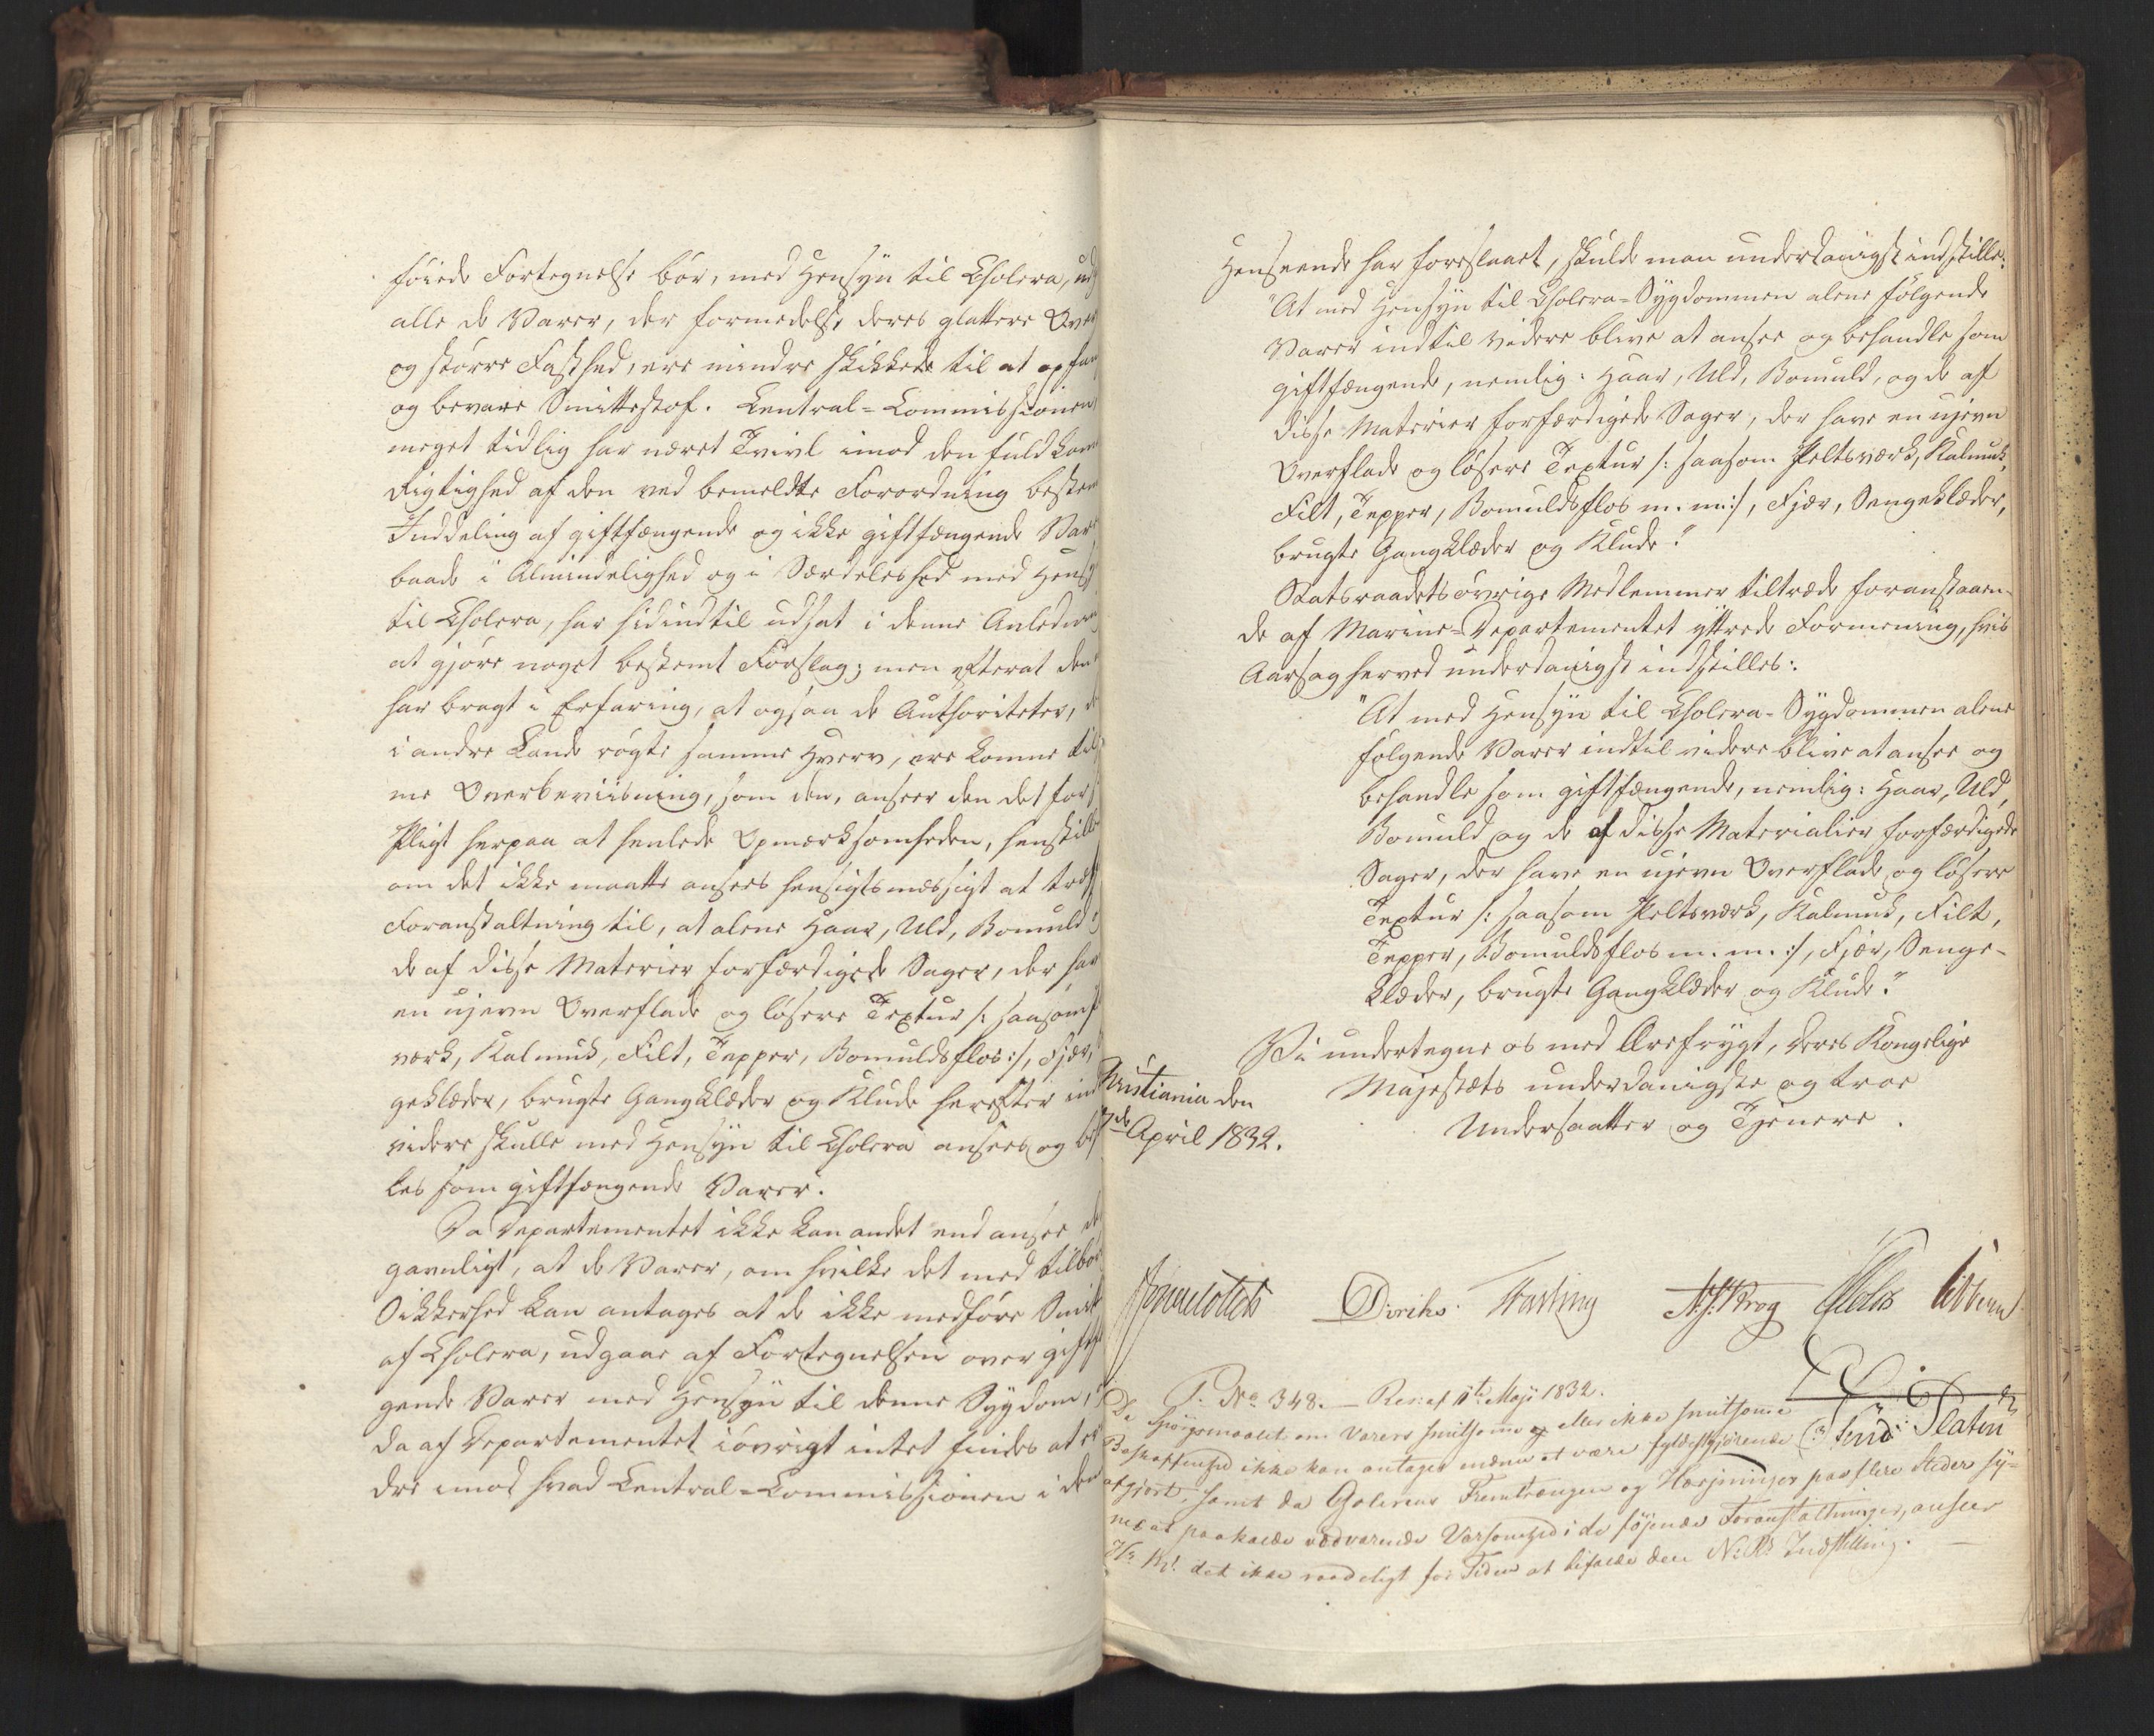 føiede Fortegnelse bør, med Hensyn til Cholera, udg
alle de Varer, der formedelst deres glattere Over
og større Fasthed, ere mindre skikkede til at opfan
og bevare Smittestof. Central-Commissionen
meget tidlig har næret Tvivl imod den fuldkom
Rigtighed af den ved bemeldte Forordning bestem
Inddeling af giftfængende og ikke giftfængende Var
baade i Almindelighed og i Særdeleshed med Hens
til Cholera, har hidindtil udsat i denne Anledni
at gjøre noget bestemt Forslag; men efterat den
har bragt i Erfaring, at ogsaa de Authoriteter, de
i andre Lande røgte samme Hverv, ere komne til
me Overbeviisning, som den, anseer den det for
Pligt herpaa at henlede Opmærksomheden, henstille
om det ikke maatte ansees hensigtsmæssigt at træf
Foranstaltning til, at alene Haar, Uld, Bomuld
de af disse Materier forfærdigede Sager, der hav
en ujevn Overflade og løsere Textur /: saasom
værk, Kalmuk, Filt, Tepper, Bomuldsflos :/, Fjær,
geklæder, brugte Gangklæder og Klude herefter ind
videre skulle med Hensyn til Cholera ansees og be
les som giftfængende Varer.
Da Departementet ikke kan andet end ansee de
gavnligt, at de Varer, om hvilke det med tilbør
Sikkerhed kan antages at de ikke medføre Smit
af Cholera, udgaae af Fortegnelsen over giftf
gende Varer med Hensyn til denne Sygdom,
da af Departementet iøvrigt intet findes at er
dre imod hvad Central-Commissionen i den
Henseende har foreslaaet, skulde man underdanigst indstille:
"At med Hensyn til Cholera-Sygdommen alene følgende
Varer indtil videre blive at ansee og behandle som
giftfængende, nemlig: Haar, Uld, Bomuld, og de af
disse Materier forfærdigede Sager, der have en ujevn
Overflade og løsere Textur /: saasom Peltsværk, Kalmuk,
Filt, Tepper, Bomuldsflos m. m :/, Fjær, Sengeklæder,
brugte Gangklæder og Klude."
Statsraadets øvrige Medlemmer tiltræde foranstaaen-
de af Marine-Departementet yttrede Formening, hvis
Aarsag herved underdanigst indstilles:
"At med Hensyn til Cholera-Sygdommen alene
følgende Varer indtil videre blive at ansee og
behandle som giftfængende, nemlig: Haar, Uld,
Bomuld og de af disse Materialier forfærdigede
Sager, der have en ujevn Overflade og løsere
Textur /: saasom Peltsværk, Kalmuk, Filt,
Tepper, Bomuldsflos m. m. :/, Fjær, Senge-
klæder, brugte Gangklæder og Klude."
Vi undertegne os med Ærefrygt, Deres Kongelige
Majestæts underdanigste og troe
Undersaatter og Tjenere.
Christiania den
7de April 1832.
Diriks Fasting Krog Holst Vibe
P. No 348. — Res: af 11te Maji 1832.
Da Spørgsmaalet om Varers smitsomme eller ikke smitsomme
Beskaffenhed ikke kan antages endnu at være fyldestgjørende
afgjort, samt da Choleraens Fremtrængen og Hærjninger paa flere Steder sy-
nes at paakalde vedvarende Varsomhed i de føjende Foranstaltninger, anseer
Hs Mt det ikke raadeligt for Tiden at bifalde den N: Rs Indstilling. —
Platen